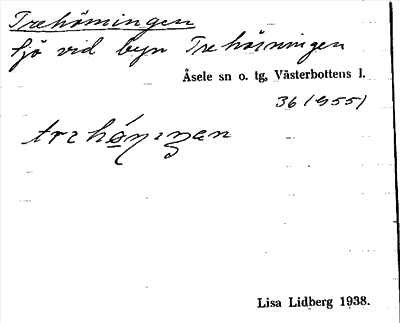 Trehörningen
sjö vid byn Trehörningen
Åsele sn o. tg, Västerbottens l.
36 (955)
Lisa Lidberg 1938.